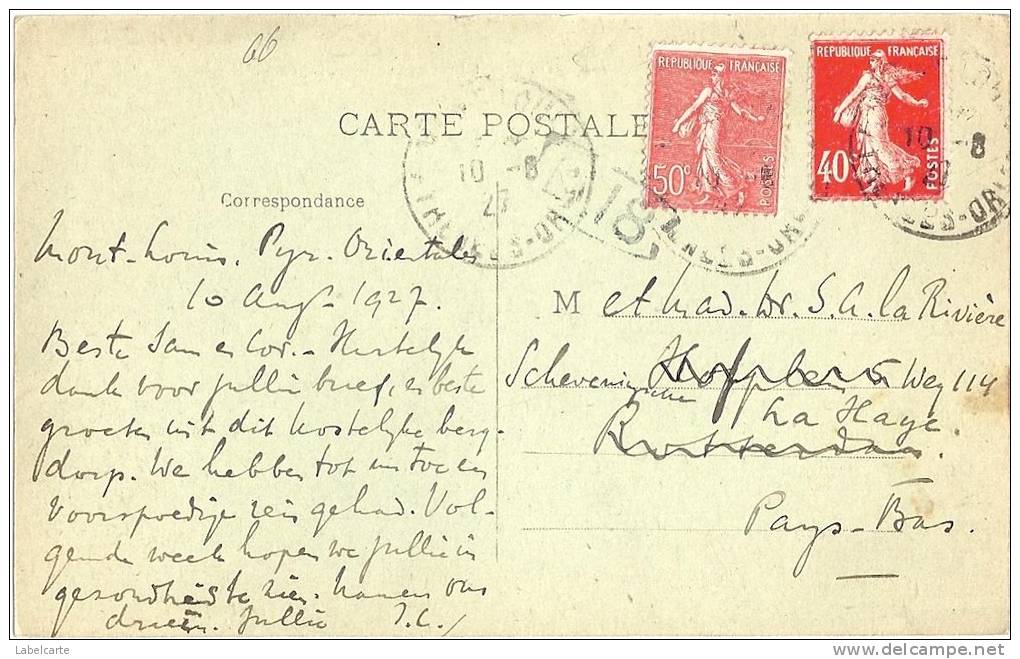 66
CARTE POSTALE
RÉPUBLIQUE FRANÇAISE
50c
POSTES
RÉPUBLIQUE FRANÇAISE
40c
POSTES
10 -8
27
10 -8
Correspondance
Mont-Louis, Pyr. Orientales
10 Aug. 1927.
Beste Sam en Cor. – Hartelijk
dank voor jullie brief, en beste
groeten uit dit kostelijke berg-
dorp. We hebben tot nu toe een
voorspoedige reis gehad. Vol-
gende week hopen we jullie in
gezondheid te zien. Namens ons
drieën. Jullie
M et Mad. Dr. S. A. la Rivière
Scheveningse Weg 114
La Haye.
Rotterdam.
Pays-Bas.
Labelcarte
www.delcampe.net